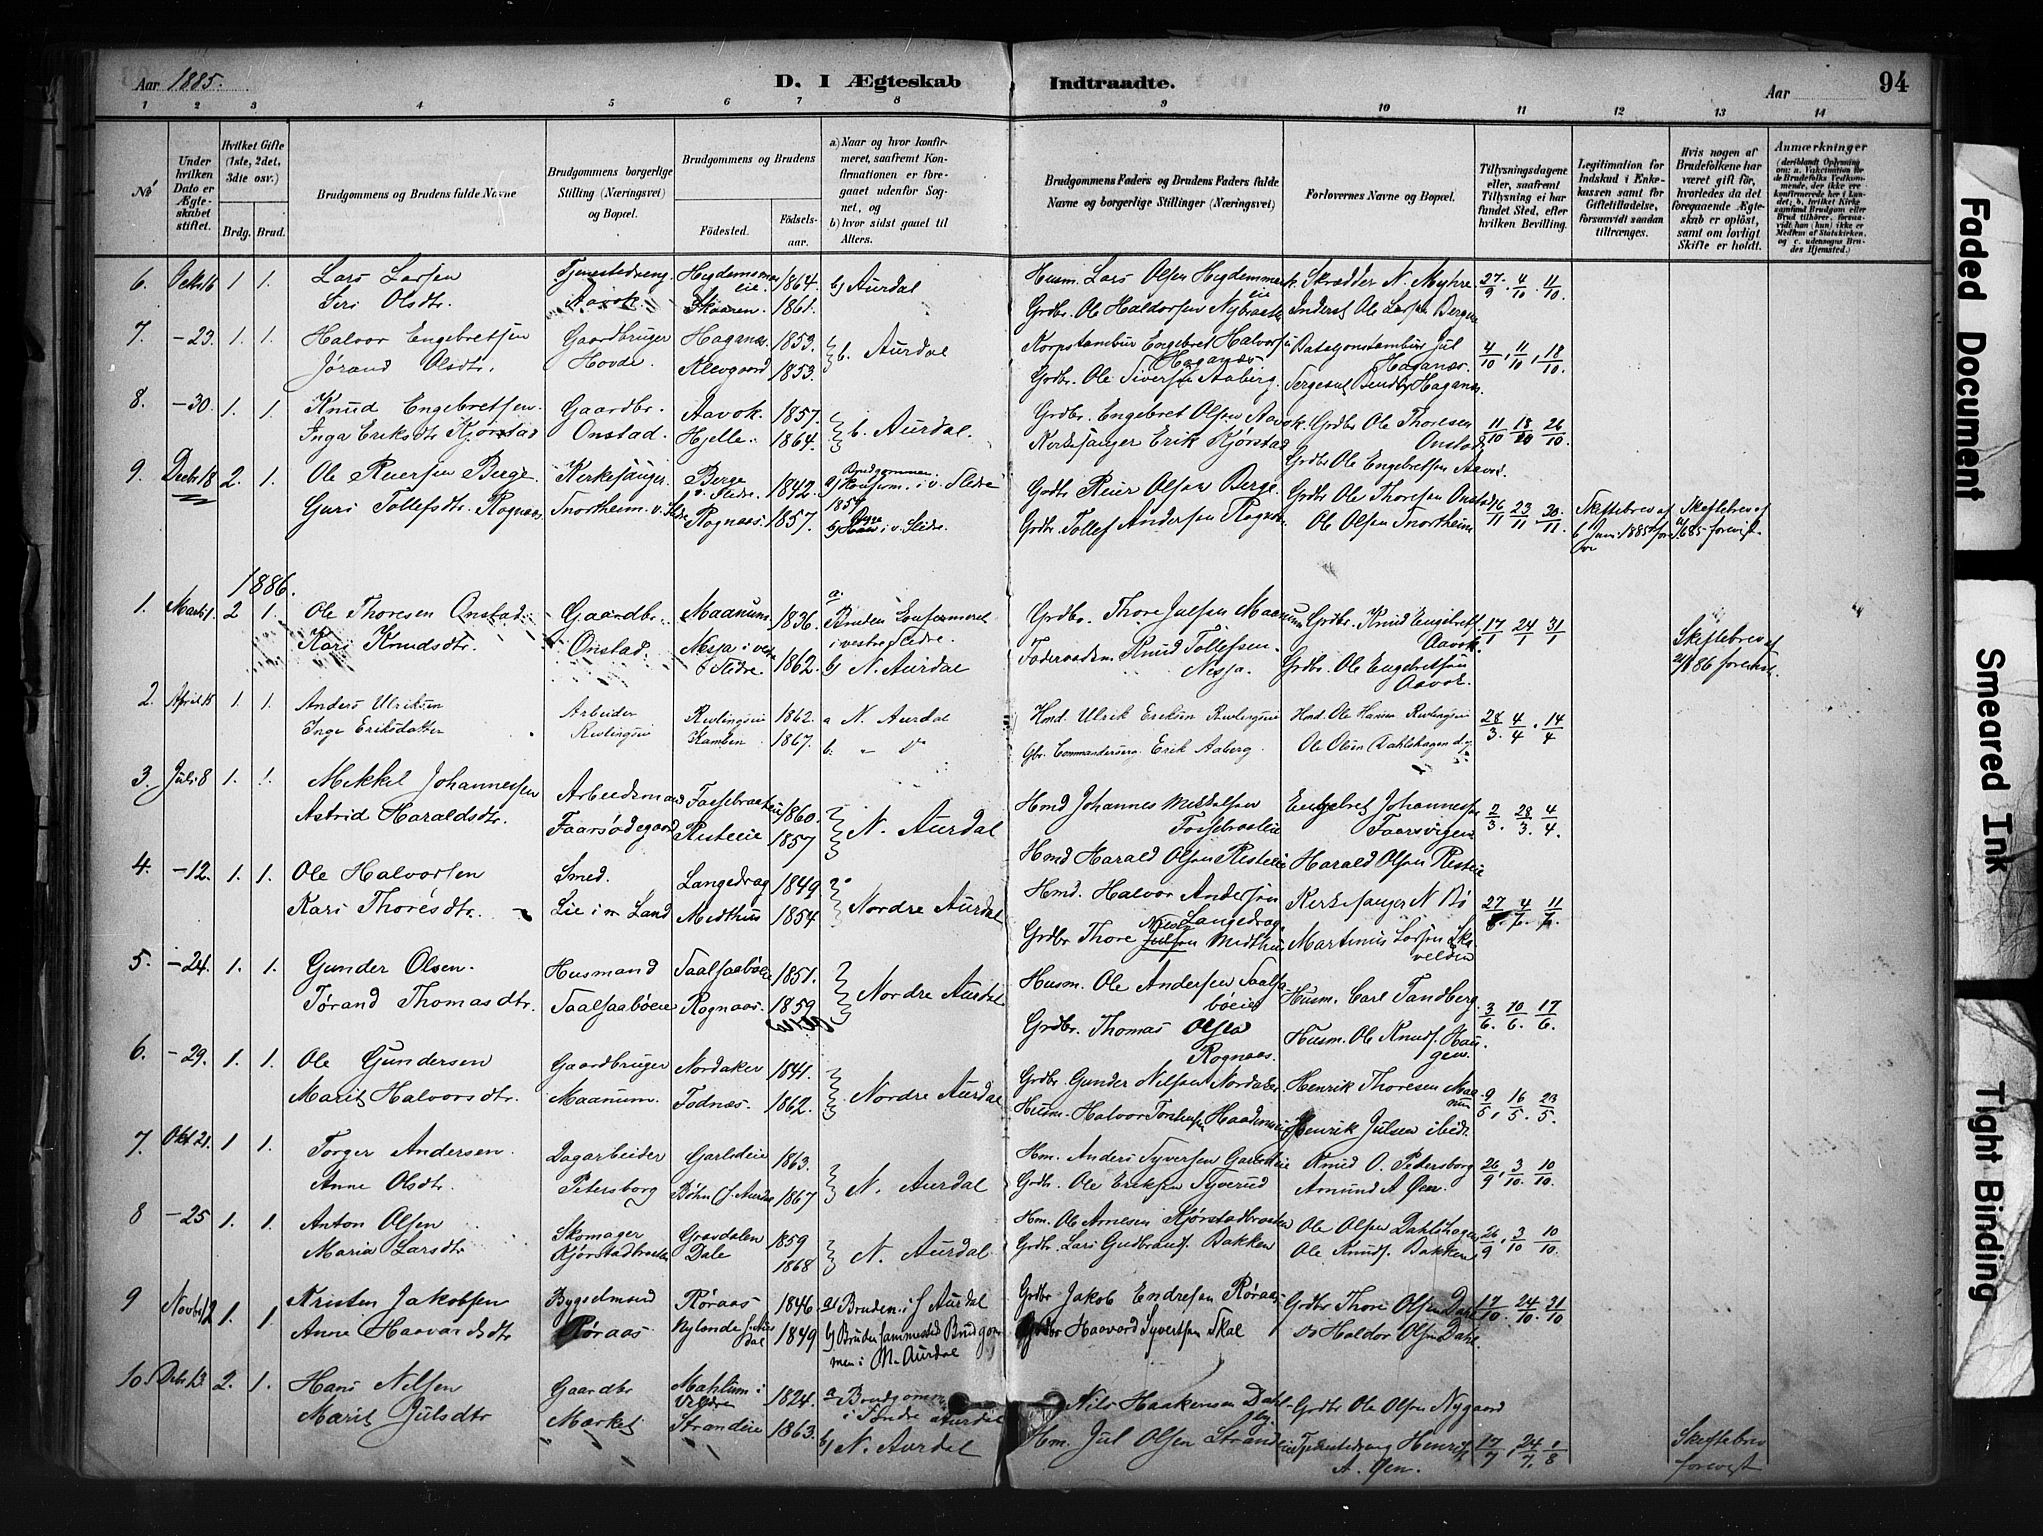 Aar 1885.
D. I Ægteskab Indtraadte.
Aar
94
1 2 3 4 5 6 7 8 9 10 11 12 13 14
No
Under hvilken Dato er Ægteskabet stiftet.
Hvilket Gifte (1ste, 2det, 3dte osv.)
Brdg. Brud.
Brudgommens og Brudens fulde Navne
Brudgommens borgerlige Stilling (Næringsvei) og Bopæl.
Brudgommens og Brudens
Födested.
Födselsaar.
a) Naar og hvor konfirmeret, saafremt Konfirmationen er foregaaet udenfor Sognet, og
b) hvor sidst gaaet til Alters.
Brudgommens Faders og Brudens Faders fulde Navne og borgerlige Stillinger (Næringsvei)
Forlovernes Navne og Bopæl.
Tillysningsdagene eller, saafremt Tillysning ei har fundet Sted, efter hvilken Bevilling.
Legitimation for Indskud i Enkekassen samt for Giftetilladelse, forsaavidt saadan tiltrænges.
Hvis nogen af Brudefolkene har været gift för, hvorledes da det foregaaende Ægteskab er oplöst, samt om lovligt Skifte er holdt.
Anmærkninger
6. Octb 16 1 1. Lars Larsen Tjenestedreng 1864. b) Aurdal Husm. Lars Olsen Skrædder N. Myhre 27/9. 4/10. 11/10
Siri Olsdtr. Aavok. Skaaren. 1861. Grdbr. Ole Haldorsen Nybraaten Inderst Ole Larsen
7. -23. 1. 1. Halvor Engebretsen Gaardbruger Haganæs 1859. b. Aurdal Korpstambur Engebret Halvorsen Bataljonstambur Jul 4/10, 11/10, 18/10
Jørand Olsdtr. Hovde. Klevgaard 1853. Haganæs Haganæs.
Grdbr. Ole Siversen Aaberg. Sergeant Haganæs
8. -30. 1. 1. Knud Engebretsen. Gaardbr. Aavok. 1857. b. Aurdal. Grdbr. Engebret Olsen Aavok. Grdbr Ole Thoresen 11/10 18/10 26/10
Inga Eriksdtr Kjørstad Onstad. Hjelle. 1864. Kirkesanger Erik Kjørstad Onstad
Grdbr Ole Engebretsen Aavok
9. Decb 18 2. 1. Ole Reiersen Berge. Kirkesanger. Berge v. Slidre. 1842. Brudgommen a) Konfirm. i v. Slidre 185 Grdbr Reier Olsen Berge. Grdbr Ole Thoresen Onstad 16/11 23/11 30/11 Skiftebrev af 6 Juni 1885 Skiftebrev af forevist
Guri Tollefsdtr. Rognaas Snortheim v. Slidre Rognaas. 1857. b) i v. Slidre. Grdbr. Tollef Andersen Rognaas Ole Olsen Snortheim
1886.
1. Marts 1. 2 1. Ole Thoresen Onstad. Gaardbr. Maanum 1836. a. Bruden Konfirmeret Grdbr. Thore Julsen Maanum Grdbr. Knud Engebretsen 17/1 24/1 31/1
Kari Knudsdtr. Onstad. Nesja i vest Slidre 1862. i vestre Slidre. b) N. Aurdal Føderaadsm. Knud Tollefsen Nesja. Aavok. Grdbr. Ole Engebretsen Aavok. Skiftebrev af 86 forevist.
2. April 18 1. 1. Anders Ulriksen Arbeider Revlingeie 1862. a N. Aurdal Hmd. Ulrik Eriksen Revlingeie Hmd. Ole Hansen Revlingeie 28/3. 4/4. 14/4
Inge Eriksdatter Revlingeie Kamben 1867. b. " D° Gbr. Erik Aaberg. Ole Olsen Dahlshagen
3. Juli 8 1. 1. Mekkel Johannessen Arbeidsmand Fossebraateie 1860. N. Aurdal Hmd Johannes Mikkelsen Engebret Johannessen 2/3. 28/3. 4/4
Astrid Haraldsdtr. Faarsødegaard Risteeie 1857 Fossebraateie Faarsvigen
Hmd Harald Olsen Risteie Harald Olsen Risteie
4. -12. 1. 1. Ole Halvorsen Smed. Langedrag 1849 Nordre Aurdal Hmd. Halvor Andersen Kirkesanger N Bø 27/. 4/6. 11/6.
Kari Thoresdtr. Lie i n. Land Midthus 1854 Langedrag Grdbr Thore Nilsen Midthus Martinus Larsen
5. -24. 1. 1. Gunder Olsen. Husmand Faalsaabøeie 1851. Nordre Aurdal Husm. Ole Andersen Faalsabøeie Husm. Carl Tandberg 3/6. 10/6. 17/6
Tørand Thomasdtr. Faalsaabøeie Rognaas. 1859. Grdbr. Thomas Olsen Rognaas. Husm. Ole Knuds. Haugen.
6. -29. 1. 1. Ole Gundersen Gaardbruger Nordaker 1841. Nordre Aurdal Grdbr. Gunder Nilsen Nordaker Henrik Thoresen Maanum 9/5. 16/5. 23/5.
Marit Halvorsdtr. Maanum. Fodnæs. 1862. Husm. Halvor Torstensen Haademeie Henrik Julsen ibid.
7. Okt 21. 1 1. Torger Andersen. Dagarbeider Garlideie 1863. N. Aurdal Hm. Anders Syversen Garlideie Knud O. Petersborg 26/9. 3/10. 10/10.
Anne Olsdtr. Petersborg Böhn S. Aurdal 1867 Grdbr. Ole Eriksen Syverud Amund A Øen.
8 -25 1. 1. Anton Olsen Skomager Gravdalen 1859 N. Aurdal Hm. Ole Arnesen Kjørstadbraaten Ole Olsen Dahlshagen 26/9. 3/10 10/10.
Maria Larsdtr. Kjørstadbraaten Dale 1868 Grdbr. Lars Gudbrands. Bakken Ole Knuds. Bakken
9 Novb 12 1. 1. Kristen Jakobsen Bygselmand Røraas 1846 a) Bruden i S Aurdal Grdbr Jakob Endresen Røraas Grdbr Thore Olsen Dahl 17/10. 24/10. 31/10
Anne Haavardsdtr Røraas. Nylende 1849 b) Bruden sammested Brudgommen i N. Aurdal Grdbr Haavard Syvertsen Skal do Haldor Olsen Dahl.
10. Decb 13. 2. 1. Hans Nilsen Gaardbr Mahlum i 1824. a Brudgommen i Søndre Aurdal Nils Haakensen Dahl Grdbr Ole Olsen Nygaard
Marit Julsdtr Market Strandeie 1863. b) N. Aurdal Hm. Jul Olsen Strandeie Tjenestedreng Henrik A. Øen. 17/7. 24/7. 1/8 Skiftebrev forevist
Faded Document
Smeared Ink
Tight Binding